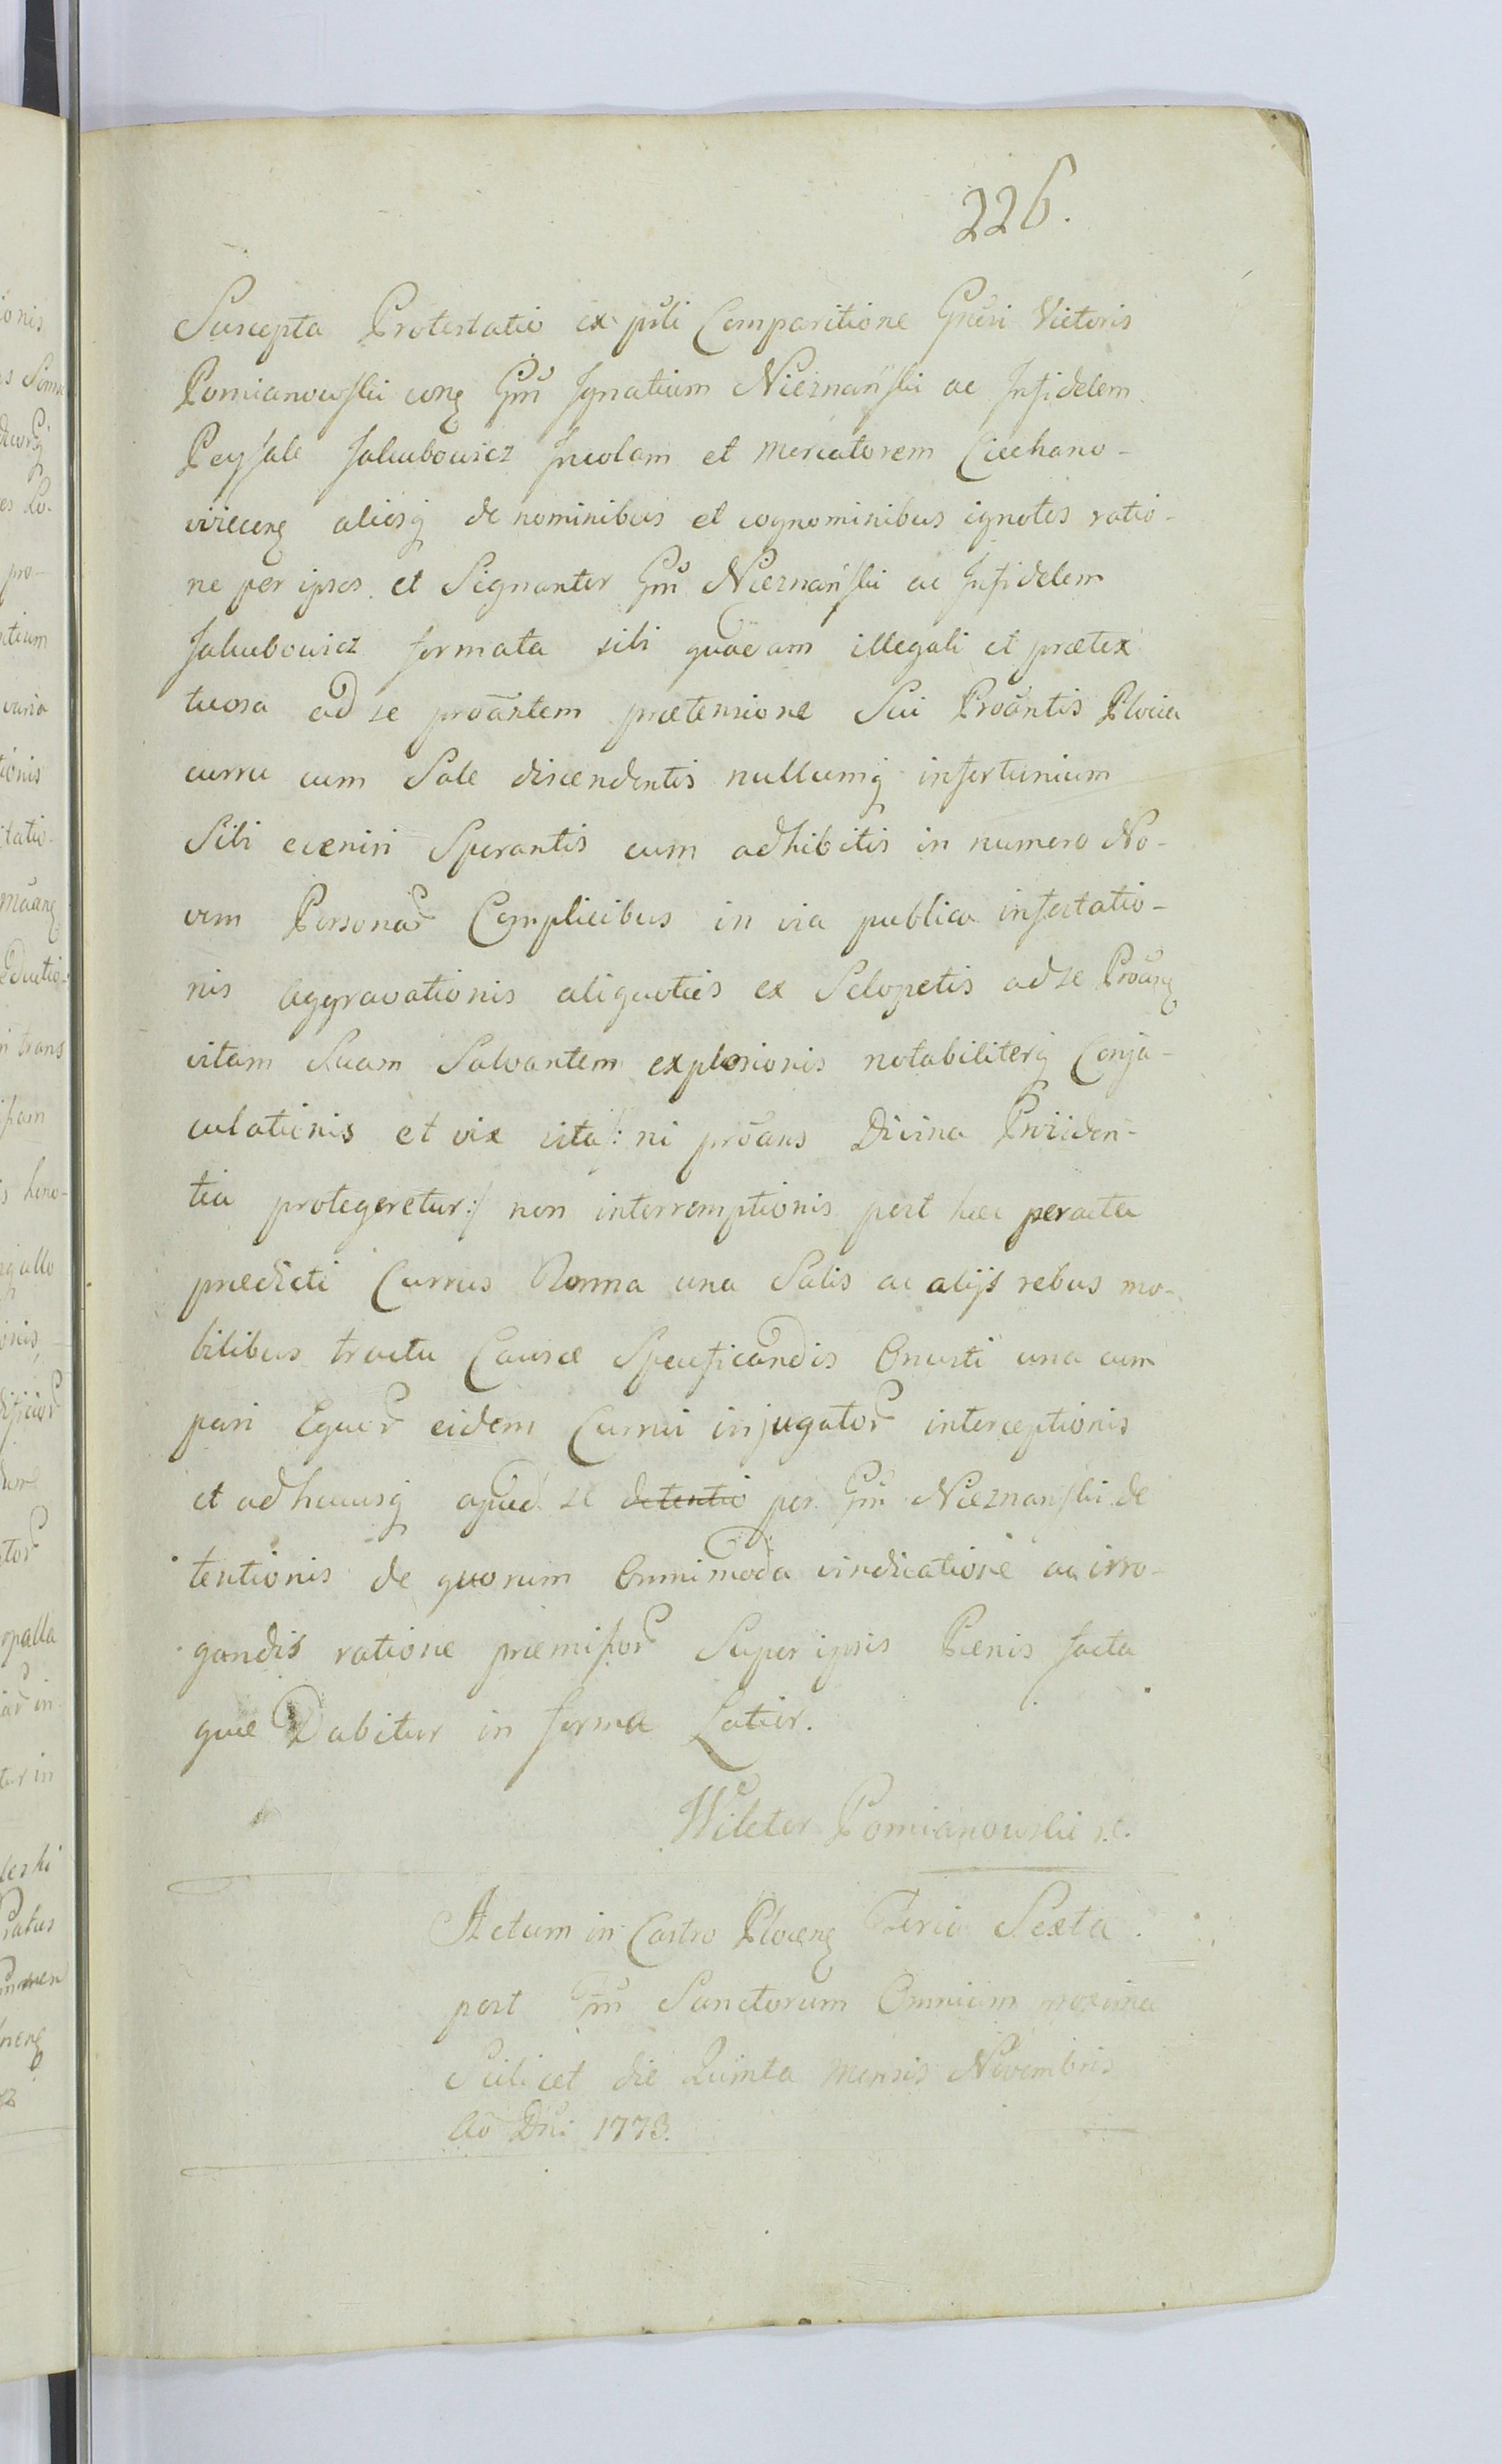 226.
Suscepta Protestatio ex pñli Comparitione Gñesi Victoris
Pomianowski cong Gm̃ Ignatium Nieznański ac Infidelem
Peysak Jakubowicz Incolam et Mercatorem Ciechano-
vieceng aliosq de nominibus et cognominibus ignotos ratio-
ne per ipsos et Signanter Gm̃ Nieznański ac Infidelem
Jakubowicz formata sibi quadam illegali et prætex
tuosa ad se proãntem prætensione Sui Proãntis Plocia
curru cum Sale discendentis nullumq infortunium
Sibi eveniri Sperantis cum adhibitis in numero No-
vem Personar Complicibus in via publica infestatio-
nis Aggravationis aliquoties ex Sclopetis ad se Proãng
vitam Suam Salvantem explosionis notabiliterq Conja-
culationis et vix vita /: ni proãns Divina Providen-
tia protegeretur :/ non interremptionis post hæc peracta
prædicti Currus Norma una Salis ac alijs rebus mo-
bilibus tractu Causæ Specificandis Onusti una cum
pari Equor eidem Currui injugator interceptionis
et adhucusq apud se detentio per Gm̃ Nieznanski de
tentionis de quorum Omnimoda vindicatione ac irro-
gandis ratione præmissor Super ipsis Pænis facta
quæ Dabitur in forma Latior.
Wikter Pomianowski
Actum in Castro Ploceng Feria Sexta
post Sanctorum Omnium maxima
Scilicet die Quinta Mensis Novembris
Ao Dni 1773.